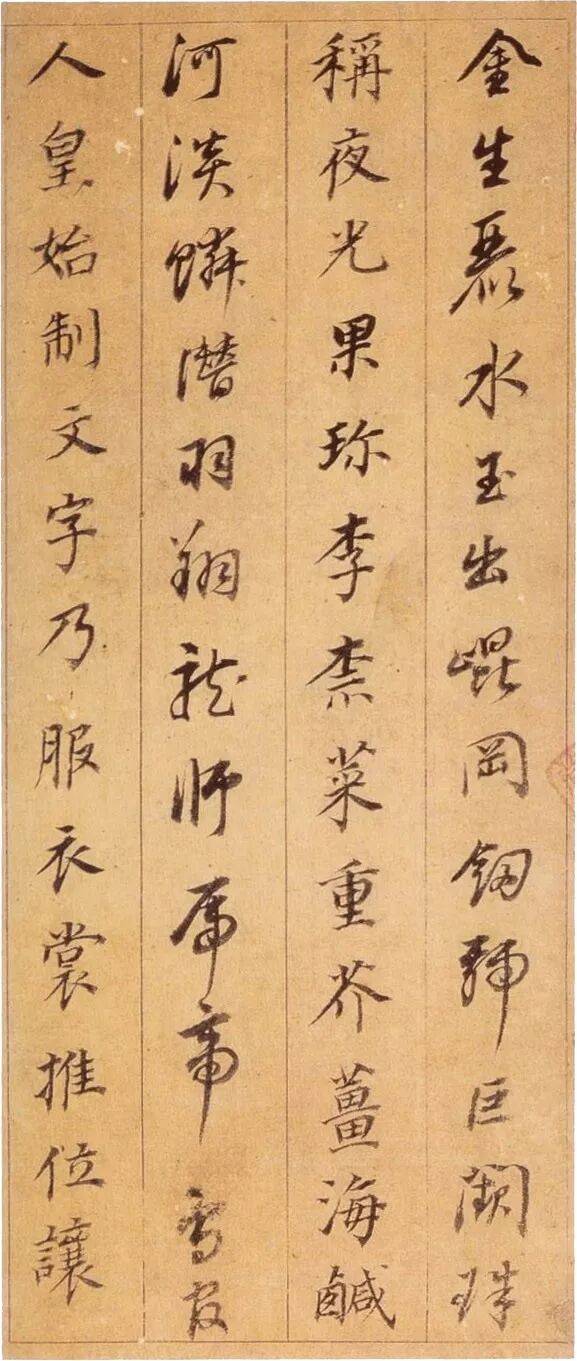 金生麗水玉出崐岡劒號巨闕珠
稱夜光果珎李柰菜重芥薑海鹹
河淡鱗潛羽翔龍師帝鳥官
人皇始制文字乃服衣裳推位讓